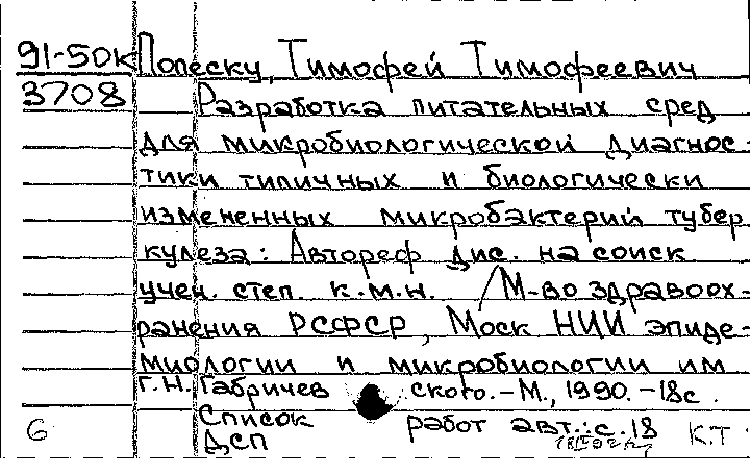 91-50К Попеску, Тимофей Тимофеевич
3708 Разработка питательных сред
для микробиологической диагнос-
тики типичных и биологически
измененных микробактерий тубер
кулеза: Автореф дис. на соиск
учен. степ. к.м.н. / М-во здравоох-
ранения РСФСР, Моск НИИ эпиде-
миологии и микробиологии им
Г.Н. Габричев ского. - М., 1990. - 18с.
Список работ авт.: с. 18
6 ДСП К.Т